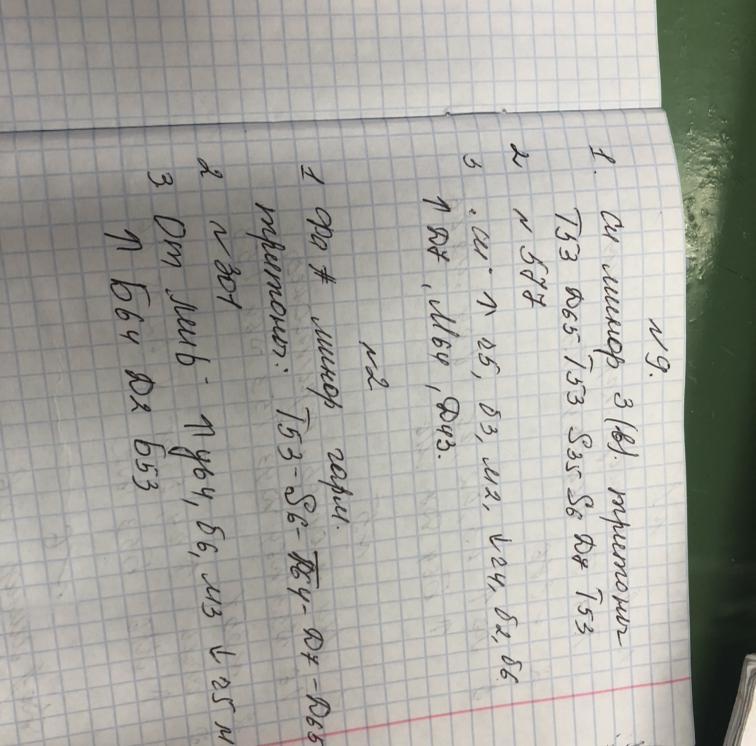 № 9.
1. си минор 3 (в). тритоны
Т53 D65 T53 S35 S6 D7 T53
2 № 577
3 "си" ↑ ч5, б3, м2, ↓ ч4, б2, б6
↑ D7, М64, D43.
№2
1 фа # минор гарм.
тритоны: Т53 - S6 - D64 - D7 - D65
2 № 301
3 От ми♭ - ↑ ув4, б6, м3 ↓ ч5 м
↑ Б64 D2 Б53